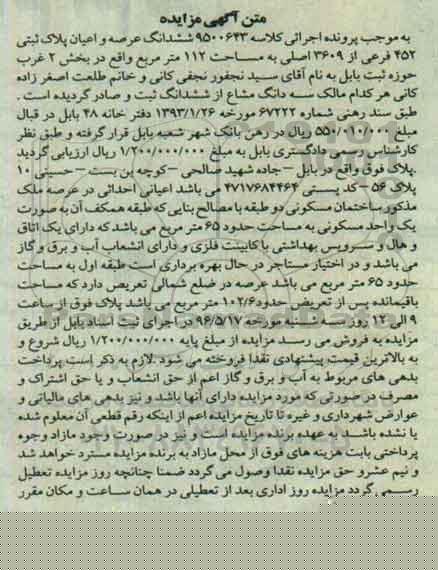 متن آگهی مزایده
به موجب پرونده اجرائی کلاسه ۹۵۰۰۶۴۳ ششدانگ عرصه و اعیان پلاک ثبتی
۴۵۲ فرعی از ۳۶۰۹ اصلی به مساحت ۱۱۲ متر مربع واقع در بخش ۲ غرب
حوزه ثبت بابل به نام آقای سید نجفور نجفی کانی و خانم طلعت اصغر زاده
کانی هر کدام مالک سه دانگ مشاع از ششدانگ ثبت و صادر گردیده است .
طبق سند رهنی شماره ۶۷۲۲۲ مورخه ۱۳۹۳/۱/۲۶ دفتر خانه ۴۸ بابل در قبال
مبلغ ۵۵۰/۰۱۰/۰۰۰ ریال در رهن بانک شهر شعبه بابل قرار گرفته و طبق نظر
کارشناس رسمی دادگستری بابل به مبلغ ۱/۲۰۰/۰۰۰/۰۰۰ ریال ارزیابی گردید
.پلاک فوق واقع در بابل –جاده شهید صالحی –کوچه بن بست – حسینی ۱۰
پلاک ۵۶ – کد پستی ۴۷۱۷۶۸۴۴۶۴ می باشد اعیانی احداثی در عرصه ملک
مذکور ساختمان مسکونی دو طبقه با مصالح بنایی که طبقه همکف آن به صورت
یک واحد مسکونی به مساحت حدود ۶۵ متر مربع می باشد که دارای یک اتاق
و هال و سرویس بهداشتی با کابینت فلزی و دارای انشعاب آب و برق و گاز
می باشد و در اختیار مستاجر در حال بهره برداری است طبقه اول به مساحت
حدود ۶۵ متر مربع می باشد عرصه در ضلع شمالی تعریض دارد که مساحت
باقیمانده پس از تعریض حدود ۱۰۲/۶ متر مربع می باشد پلاک فوق از ساعت
۹ الی ۱۲ روز سه شنبه مورخه ۹۶/۵/۱۷ در اجرای ثبت اسناد بابل از طریق
مزایده به فروش می رسد مزایده از مبلغ پایه ۱/۲۰۰/۰۰۰/۰۰۰ ریال شروع و
به بالاترین قیمت پیشنهادی نقدا فروخته می شود .لازم به ذکر است پرداخت
بدهی های مربوط به آب و برق و گاز اعم از حق انشعاب و یا حق اشتراک و
مصرف در صورتی که مورد مزایده دارای آنها باشد و نیز بدهی های مالیاتی و
عوارض شهرداری و غیره تا تاریخ مزایده اعم از اینکه رقم قطعی آن معلوم شده
یا نشده باشد به عهده برنده مزایده است و نیز در صورت وجود مازاد وجوه
پرداختی بابت هزینه های فوق از محل مازاد به برنده مزایده مسترد خواهد شد
و نیم عشر و حق مزایده نقدا وصول می گردد ضمنا چنانچه روز مزایده تعطیل
رسمی گردد مزایده روز اداری بعد از تعطیلی در همان ساعت و مکان مقرر